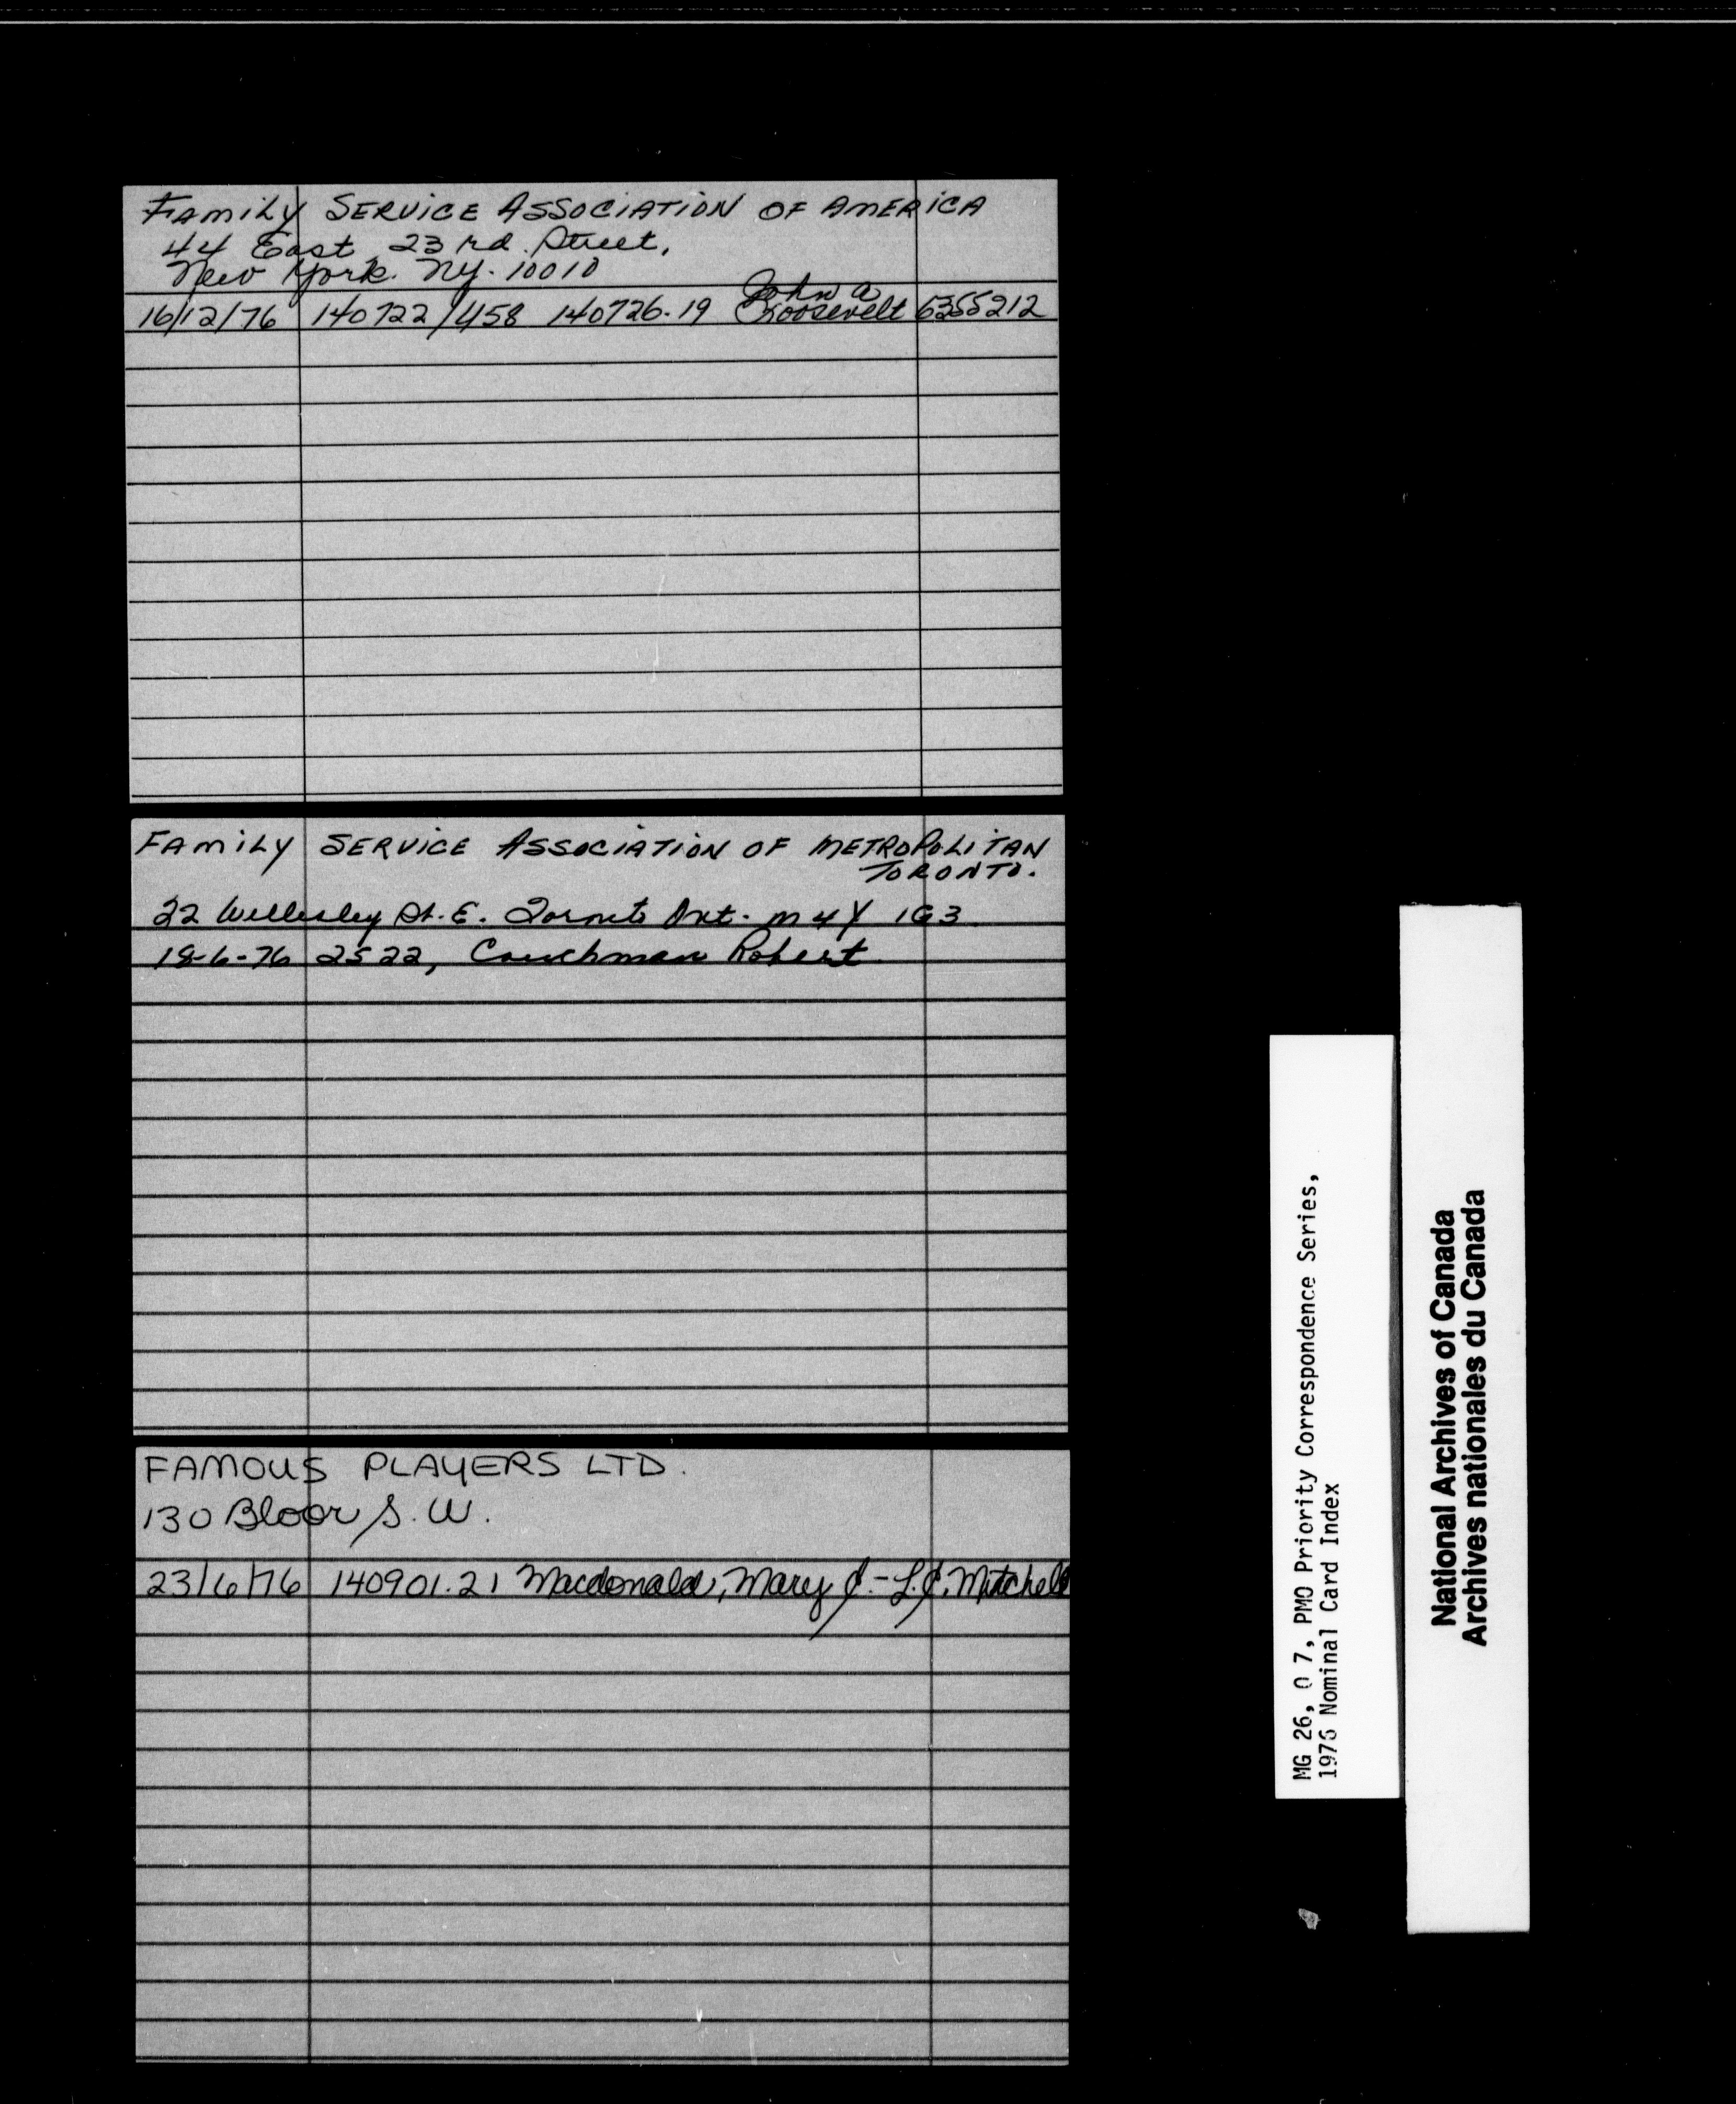 FAMILY SERVICE ASSOCIATION OF AMERICA
44 East 23 rd. Street,
New York. NY. 10010
John A
16/12/76 140722/458 140726.19 Roosevelt 6355212
FAMILY SERVICE ASSOCIATION OF METROPOLITAN
TORONTO.
22 Wellesley St. E. Toronto Ont. M4Y 1G3
18-6-76 2522, Couchman Robert
FAMOUS PLAYERS LTD.
130 Bloor S. W.
23/6/76 140901.21 Macdonald, Mary J. - L.J. Mitchell
MG 26, O 7, PMO Priority Correspondence Series,
1976 Nominal Card Index
National Archives of Canada
Archives nationales du Canada